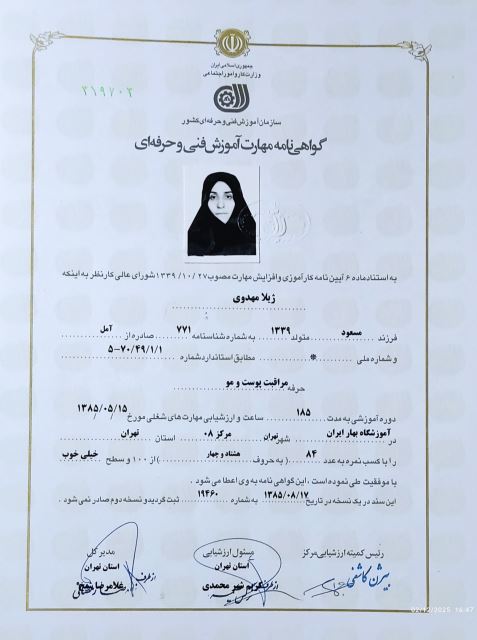 جمهوری اسلامی ایران
وزارت کار و امور اجتماعی
۳۱۹۷۰۲
سازمان آموزش فنی و حرفه‌ای کشور
گواهی‌نامه مهارت آموزش فنی و حرفه‌ای
به استناد ماده ۶ آیین نامه کارآموزی و افزایش مهارت مصوب ۲۷ /۱۰ /۱۳۳۹ شورای عالی کار نظر به اینکه
ژیلا مهدوی
فرزند مسعود متولد ۱۳۳۹ به شماره شناسنامه ۷۷۱ صادره از آمل
و شماره ملی * مطابق استاندارد شماره ۵-۷۰/۴۹/۱/۱
حرفه مراقبت پوست و مو
دوره آموزشی به مدت ۱۸۵ ساعت و ارزشیابی مهارت‌های شغلی مورخ ۱۳۸۵/۰۵/۱۵
در آموزشگاه بهار ایران شهر تهران مرکز ۰۸ استان تهران
را با کسب نمره به عدد ۸۴ (به حروف هشتاد و چهار) از ۱۰۰ و سطح خیلی خوب
با موفقیت طی نموده است ، این گواهی نامه به وی اعطا می شود .
این سند در یک نسخه در تاریخ ۱۳۸۵/۰۸/۱۷ به شماره ۱۹۴۶۰ ثبت گردید و نسخه دوم صادر نمی شود .
رئیس کمیته ارزشیابی مرکز
بیژن کاشفی
مسئول ارزشیابی
استان تهران
از طرف
مهر محمدی
مدیر کل
استان تهران
از طرف
غلامرضا
02/12/2025 16:47